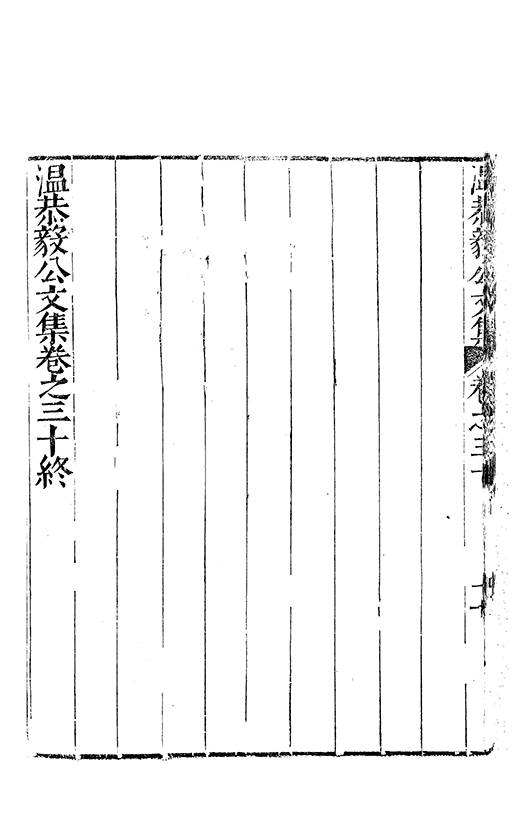 温恭毅公文集卷之三十
温恭毅公文集卷之三十終